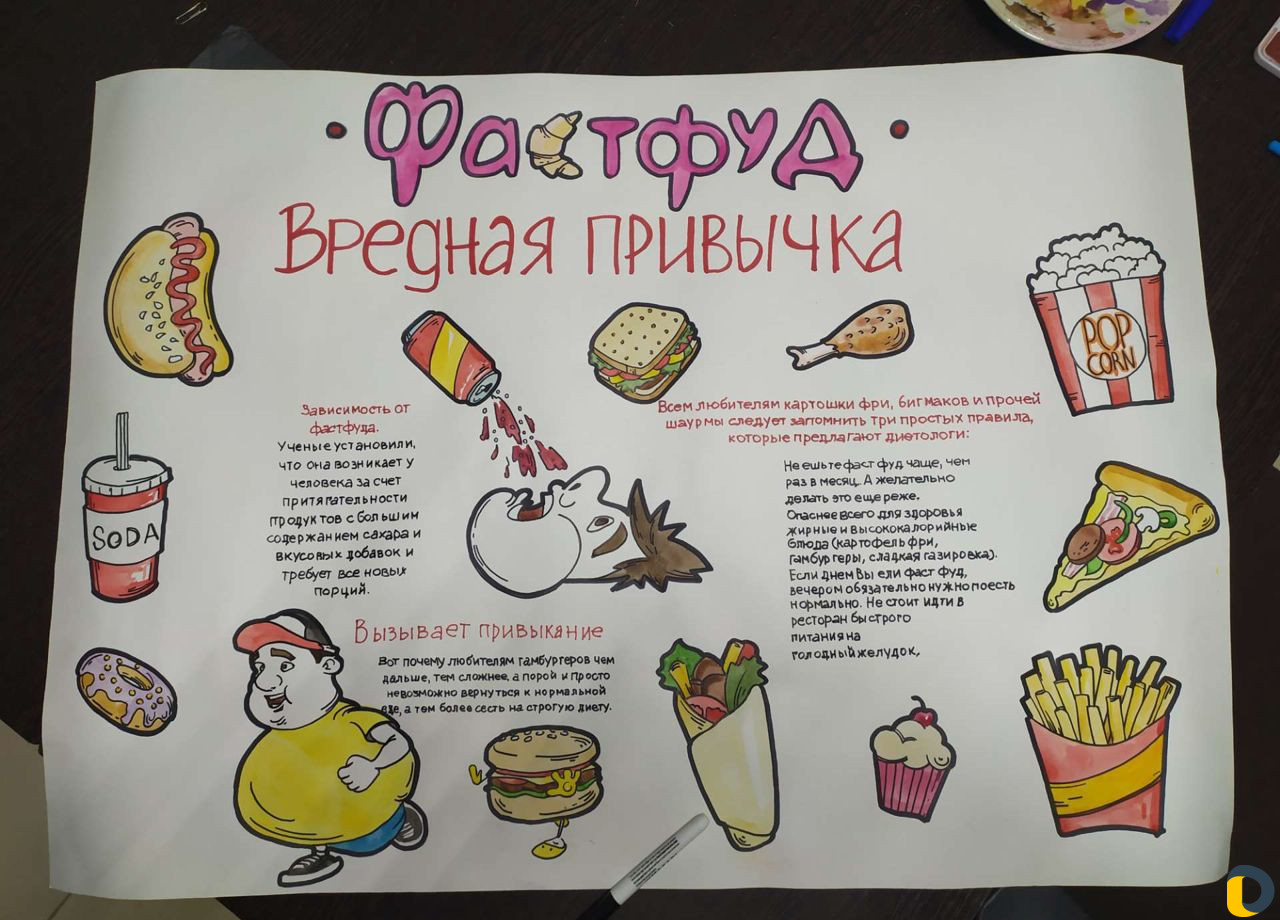 Фастфуд
Вредная привычка
POP
CORN
Зависимость от
фастфуда.
Ученые установили,
что она возникает у
человека за счет
притягательности
продуктов с большим
содержанием сахара и
вкусовых добавок и
требует все новых
порций.
Всем любителям картошки фри, бигмаков и прочей
шаурмы следует запомнить три простых правила,
которые предлагают диетологи:
Не ешьте фаст фуд чаще, чем
раз в месяц. А желательно
делать это еще реже.
Опаснее всего для здоровья
жирные и высококалорийные
блюда (картофель фри,
гамбургеры, сладкая газировка).
Если днем Вы ели фаст фуд,
вечером обязательно нужно поесть
нормально. Не стоит идти в
ресторан быстрого
питания на
голодный желудок,
SODA
Вызывает привыкание
Вот почему любителям гамбургеров чем
дальше, тем сложнее, а порой и просто
невозможно вернуться к нормальной
еде, а тем более сесть на строгую диету.